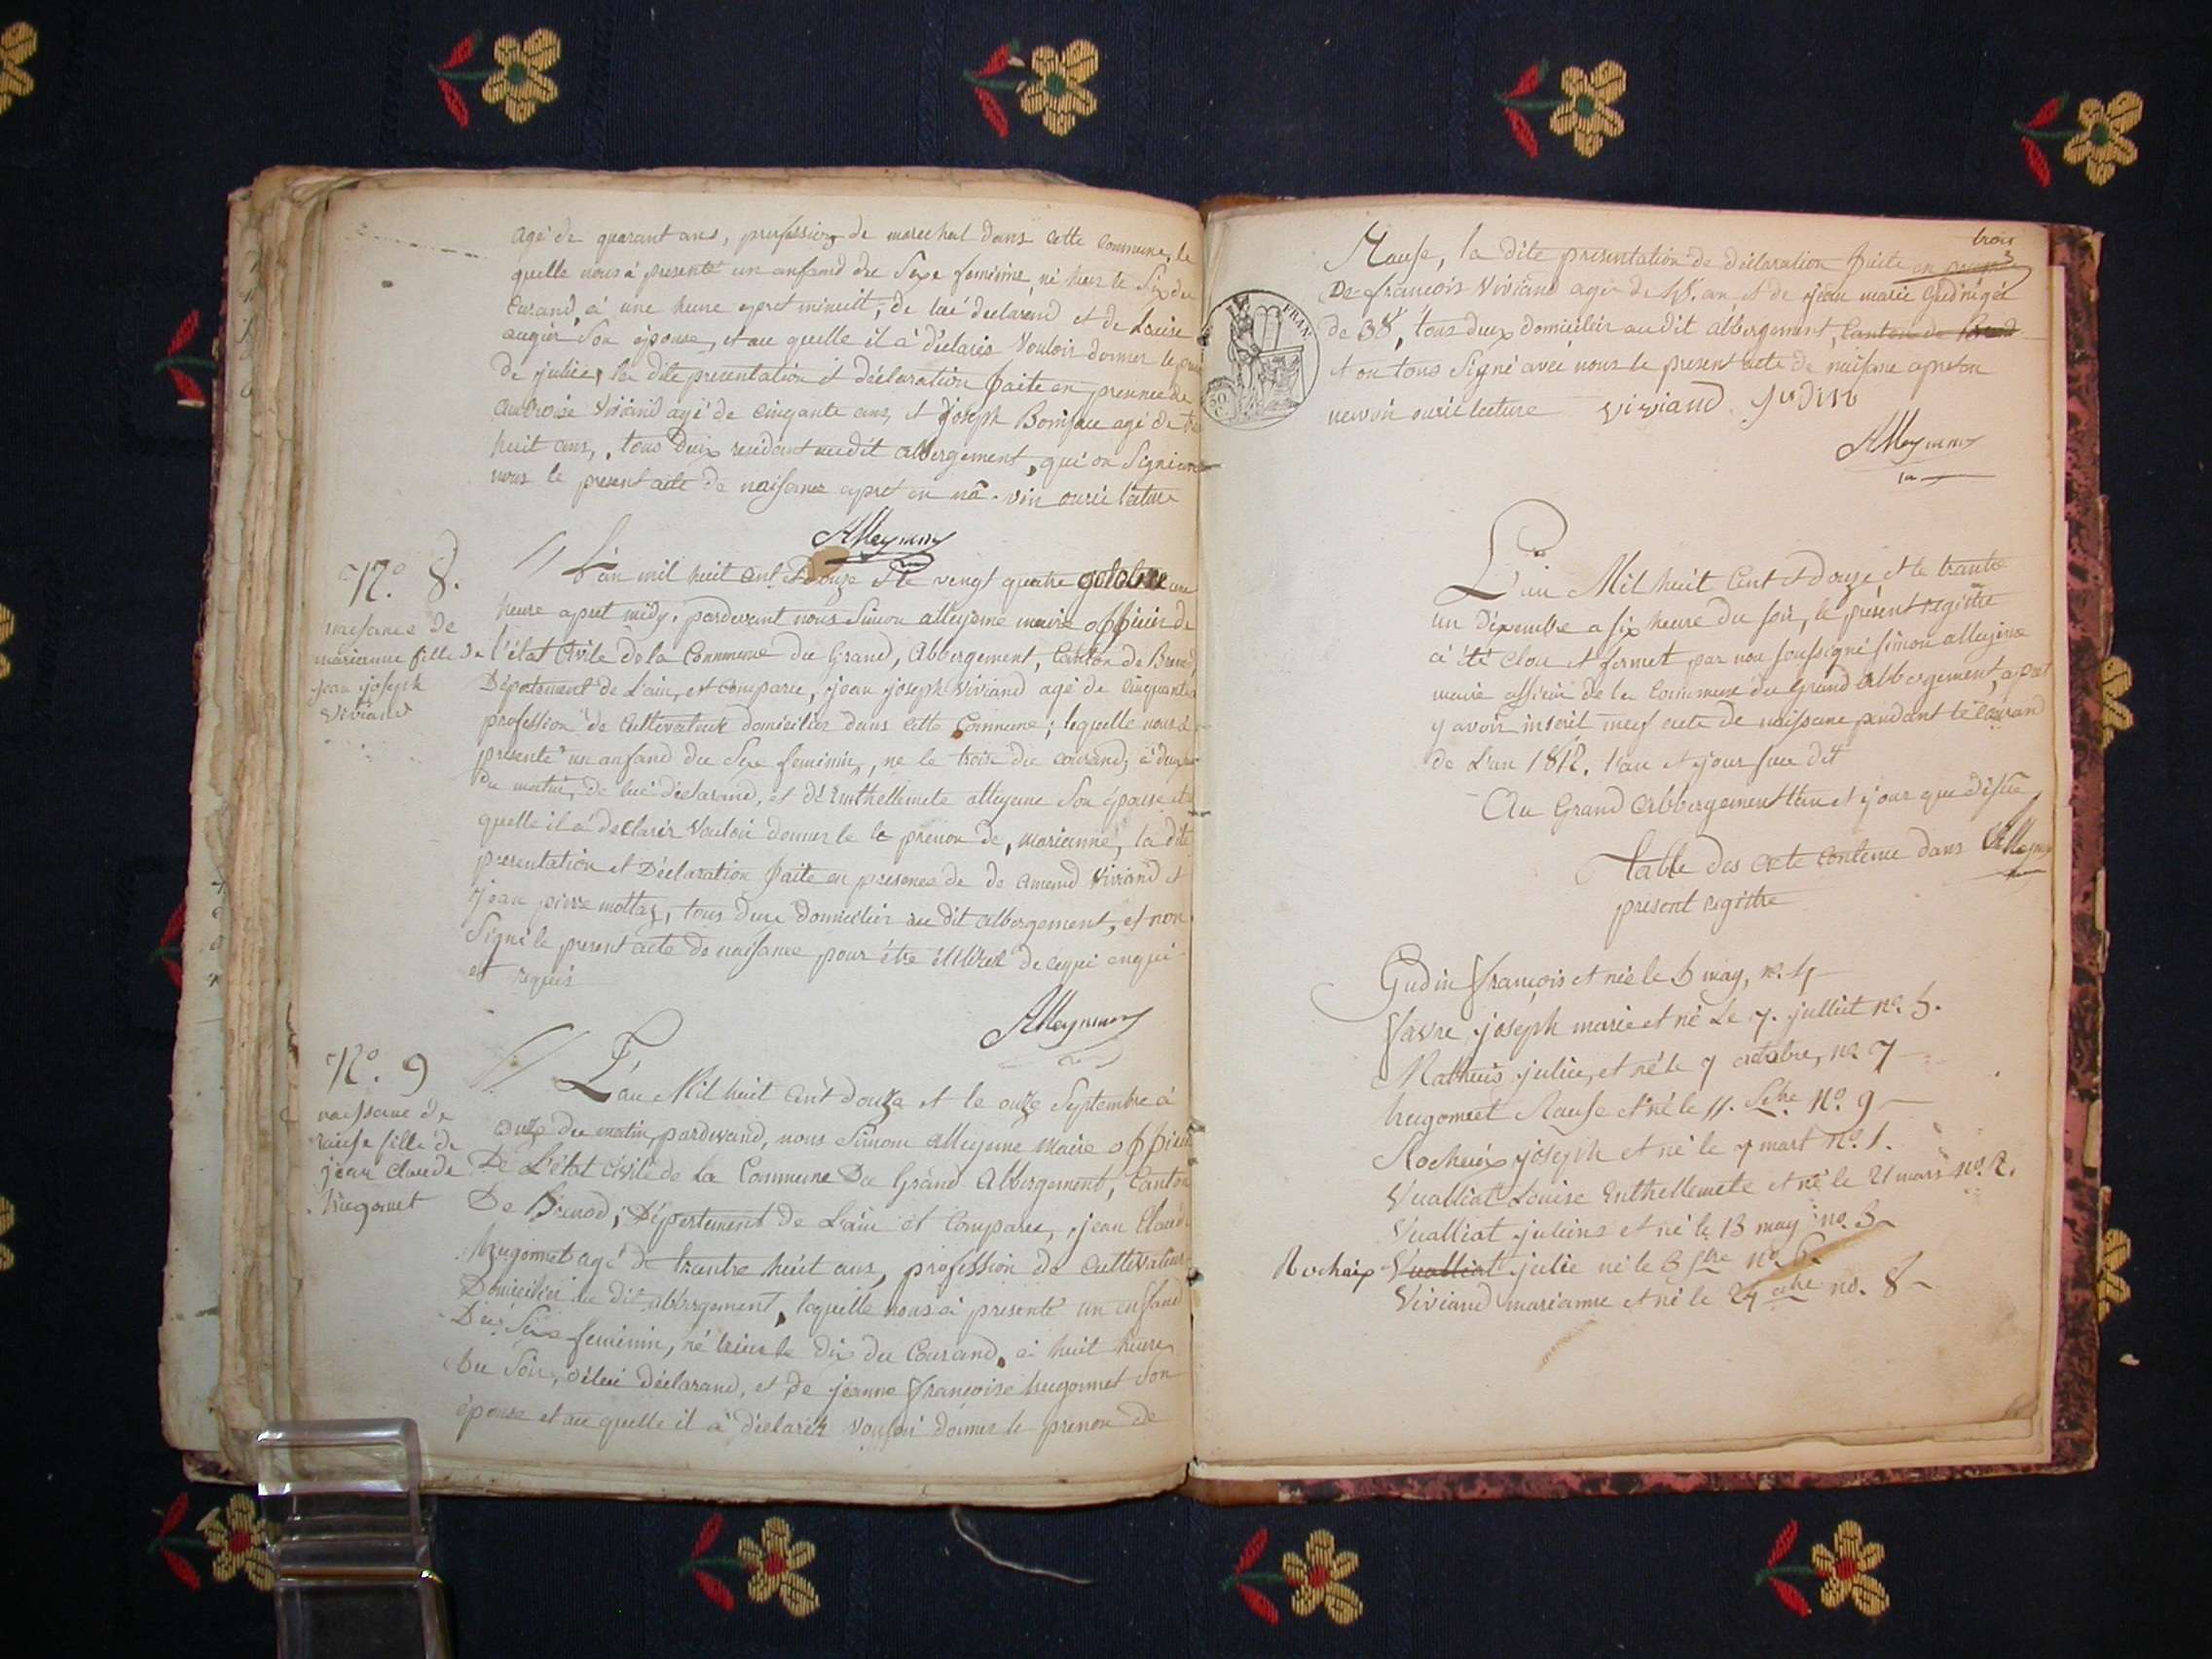 agé de quarant ans, profession de marechal dans cette commune, le
quelle nous à presenté un anfand du Sexe feminine, né hier le Six du
Curand, à une heure apret minuit, de lui declarand et de Louise
augier Son épouse, et au quelle il à déclarés Vouloir donner le
De julie, la dite presentation et déclaration faite en presence de
Viviand agé de Cinqante ans, et joseph Bonjau agé de
huit ans, tous deux residant audit abbergement, qui on Signé
nous le present acte de naisance apret en
Alleymme
N.o 8.
naisance de
marianne fille de
jean joseph
Viviand
L'an mil huit cent et Douze et le vengt quatre octobre une
heure apret midy, pardevant nous Simon alleyme maire officier de
l'état Civile de la Commune du Grand, Abbergement, Canton de Brenod,
Département de L'ain, et comparu, jean joseph Viviand agé de Cinquante
profession de Cultivateur domicilier dans cette Commune; lequelle nous à
presenté un anfand du Sexe feminin, ne le trois du courand, à deux
du matin, de lui declarand, et de Enthellemete alleyme Son épouse et
quelle il à declarér Vouloir donner le le prenon de, marianne, la dite
presentation et Déclaration faite en presence de de amand Viviand et
jean pierre mottaz, tous deux domicilier au dit abbergement, et non
Signé le present acte de naisance pour étre de cequi enqui
et requis
Alleymme
N.o 9
naissance de
rause fille de
jean claude
hugonnet
L'an Mil huit Cent douze et le onze Septembre à
onze du matin, pardevand, nous Simon alleyme Maire officier
De L'état Civile de la Commune Du Grand Abbergement, Canton
De Brenod; Département de L'ain et Comparu, jean Claude
hugonnet agé de trentre huit ans, profession de cultivateur
Domicilier au dit abbergement, laquelle nous à presenté un enfand
Du Sexe feminin, né hier le dix du Courand, à huit heure
Du Soir, de lui déclarand, et de jeanne françoise hugonnet Son
épouse et au quelle il à déclarér vouloir donner le prenon de
trois
Rause, la dite presentation de déclaration faite en
De françois Viviand agé de 45. an et de jean marie Gudin agé
de 38, tous deux domicilier au dit abbergement, Canton de Brenod
et on tous Signé avec nous le present acte de naisane apret
nevoir ouvié lecture Viviand Judin
Alleymme
FRAN
50
L'an Mil huit Cent et douze et le trante
un Déxembre a six heure du soir, le présent registre
à été clou et fermet par nou soussigné Simon alleyme
maire offisier de la Commune du Grand Abbergement, apret
y avoir inserit neuf acte de naissane pendant le courand
de L'an 1812. l'an et jour sue dit
Au Grand abbergement l'an et jour que desue
Alleymme
Table des acte contenu dans
present registre
Gudin François et née le 5 may, n.o 4
Favre joseph marie et né le 7. julliet no. 5.
Mathieu julie, et né le 7 octobre, no. 7
hugonnet Rause et né le 11. Sbre No. 9
Rocheix joseph et né le 7 mart No. 1.
Vualliat Louise Enthellemete et né le 21 mars no. 2.
Vualliat juliens et né le 13 may no. 3
Rochaix Vualliat julie né le 3 Sbre no. 6.
Viviand marianne et né le 24 obre no. 8